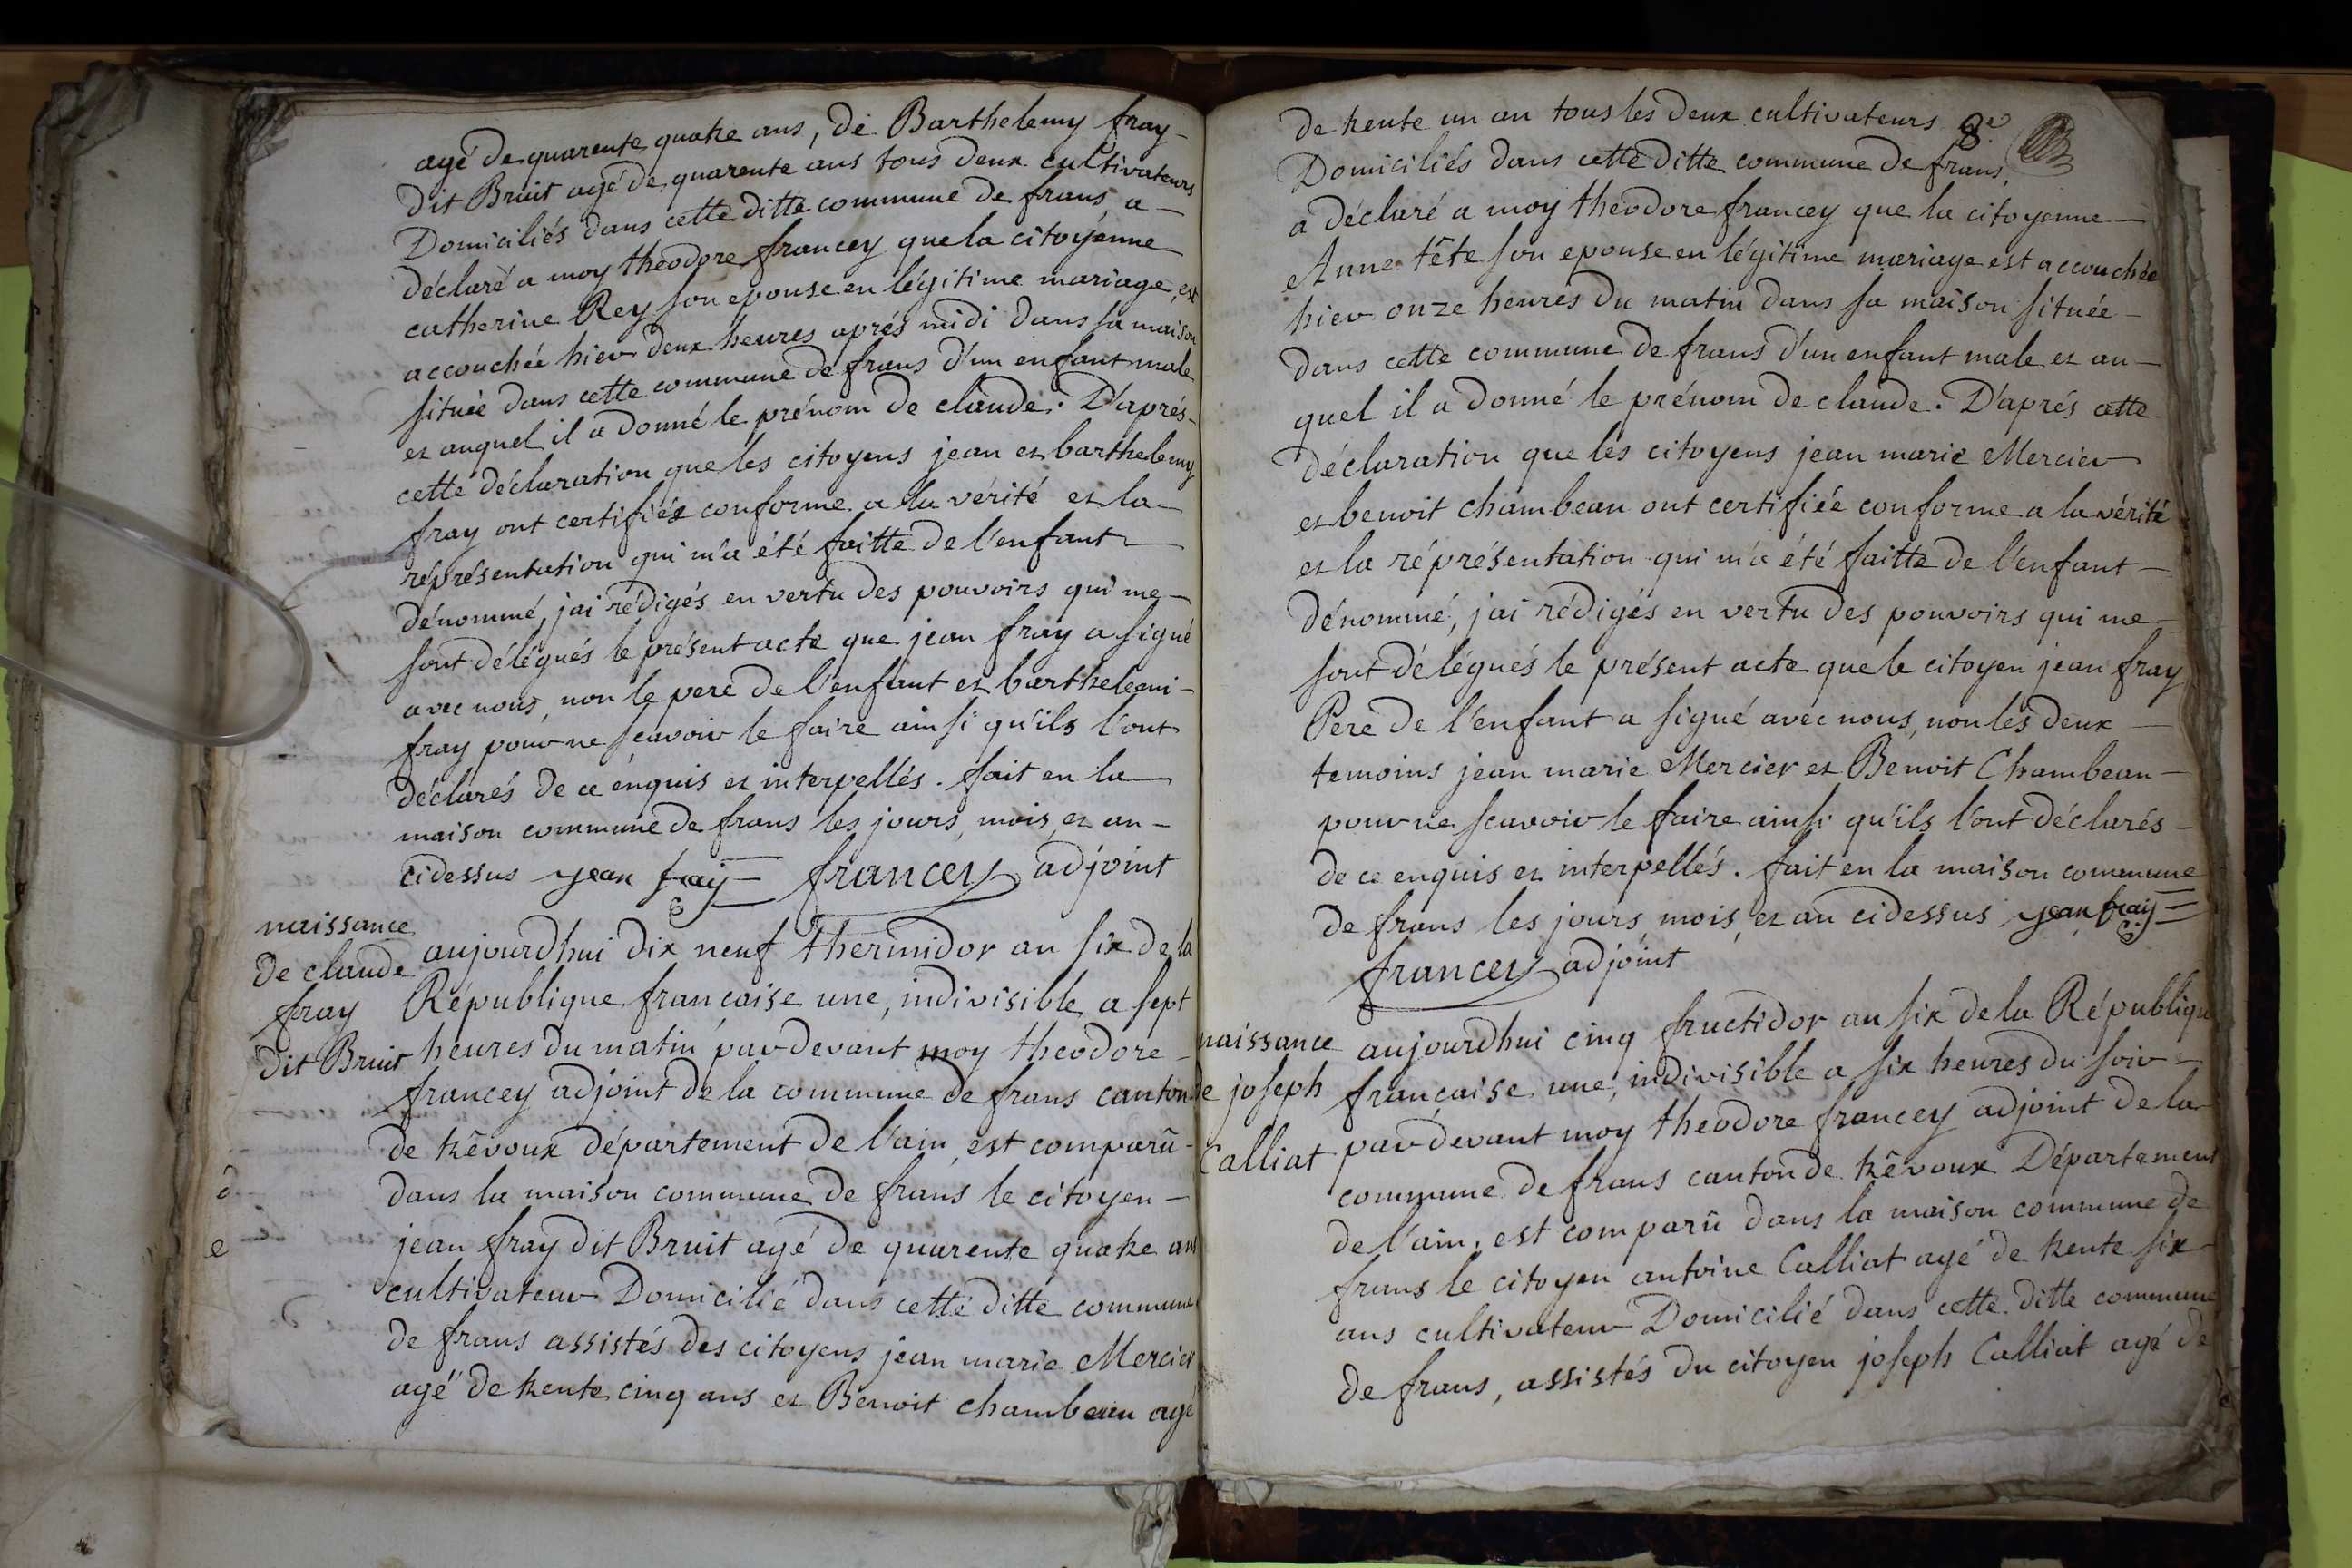 agé de quarente quatre ans, de Barthelemy fray -
dit Bruit agé de quarente ans tous deux cultivateurs
Domiciliés dans cette ditte commune de frans a -
déclaré a moy théodore francey que la citoyenne
catherine Rey son epouse en légitime mariage, est
accouchée hier deux heures aprés midi dans sa maison
située dans cette commune de frans d'un enfant male
et auquel il a donné le prénom de claude. D'aprés -
cette déclaration que les citoyens jean et barthelemy
fray ont certifiée conforme a la vérité et la -
réprésentation qui m'a été faitte de l'enfant
dénommé, j'ai rédigés en vertu des pouvoirs qui me -
sont délégués le présent acte que jean fray a signé
avec nous, non le pere de l'enfant et barthelemi -
fray pour ne scavoir le faire ainsi qu'ils l'ont
déclarés de ce énquis et interpellés. fait en la
maison commune de frans les jours, mois et an -
cidessus jean fray francey adjoint
naissance
de claude
fray
dit Bruit
aujourdhui dix neuf thermidor an six de la
République française une, indivisible a sept
heures du matin pardevant moy théodore -
francey adjoint de la commune de frans canton
de trévoux département de l'ain, est comparû -
dans la maison commune de frans le citoyen -
jean fray dit Bruit agé de quarente quatre ans
cultivateur Domicilié dans cette ditte commune
de frans assistés des citoyens jean marie Mercier
agé de trente cinq ans et Benoit chambeau agé
8e
de trente un an tous les deux cultivateurs
Domiciliés dans cette ditte commune de frans,
a déclaré a moy théodore francey que la citoyenne -
Anne tête son epouse en légitime mariage est accouchée
hier onze heures du matin dans sa maison située -
dans cette commune de frans d'un enfant male et au -
quel il a donné le prénom de claude. D'aprés cette
déclaration que les citoyens jean marie Mercier
et benoit chambeau ont certifiée conforme a la vérité
et la réprésentation qui m'a été faitte de l'enfant -
dénommé, j'ai rédigés en vertu des pouvoirs qui me
sont délégués le présent acte que le citoyen jean fray
Pere de l'enfant a signé avec nous, non les deux -
temoins jean marie Mercier et Benoit Chambeau -
pour ne scavoir le faire ainsi qu'ils l'ont déclarés -
de ce enquis et interpellés. fait en la maison commune
de frans les jours, mois, et an cidessus jean fray
francey adjoint
naissance
de joseph
Calliat
aujourdhui cinq fructidor an six de la République
française une, indivisible a six heures du soir -
pardevant moy théodore francey adjoint de la
commune de frans canton de trévoux Département
de l'ain, est comparû dans la maison commune de
frans le citoyen antoine Calliat agé de trente six
ans cultivateur Domicilié dans cette ditte commune
de frans, assistés du citoyen joseph Calliat agé de